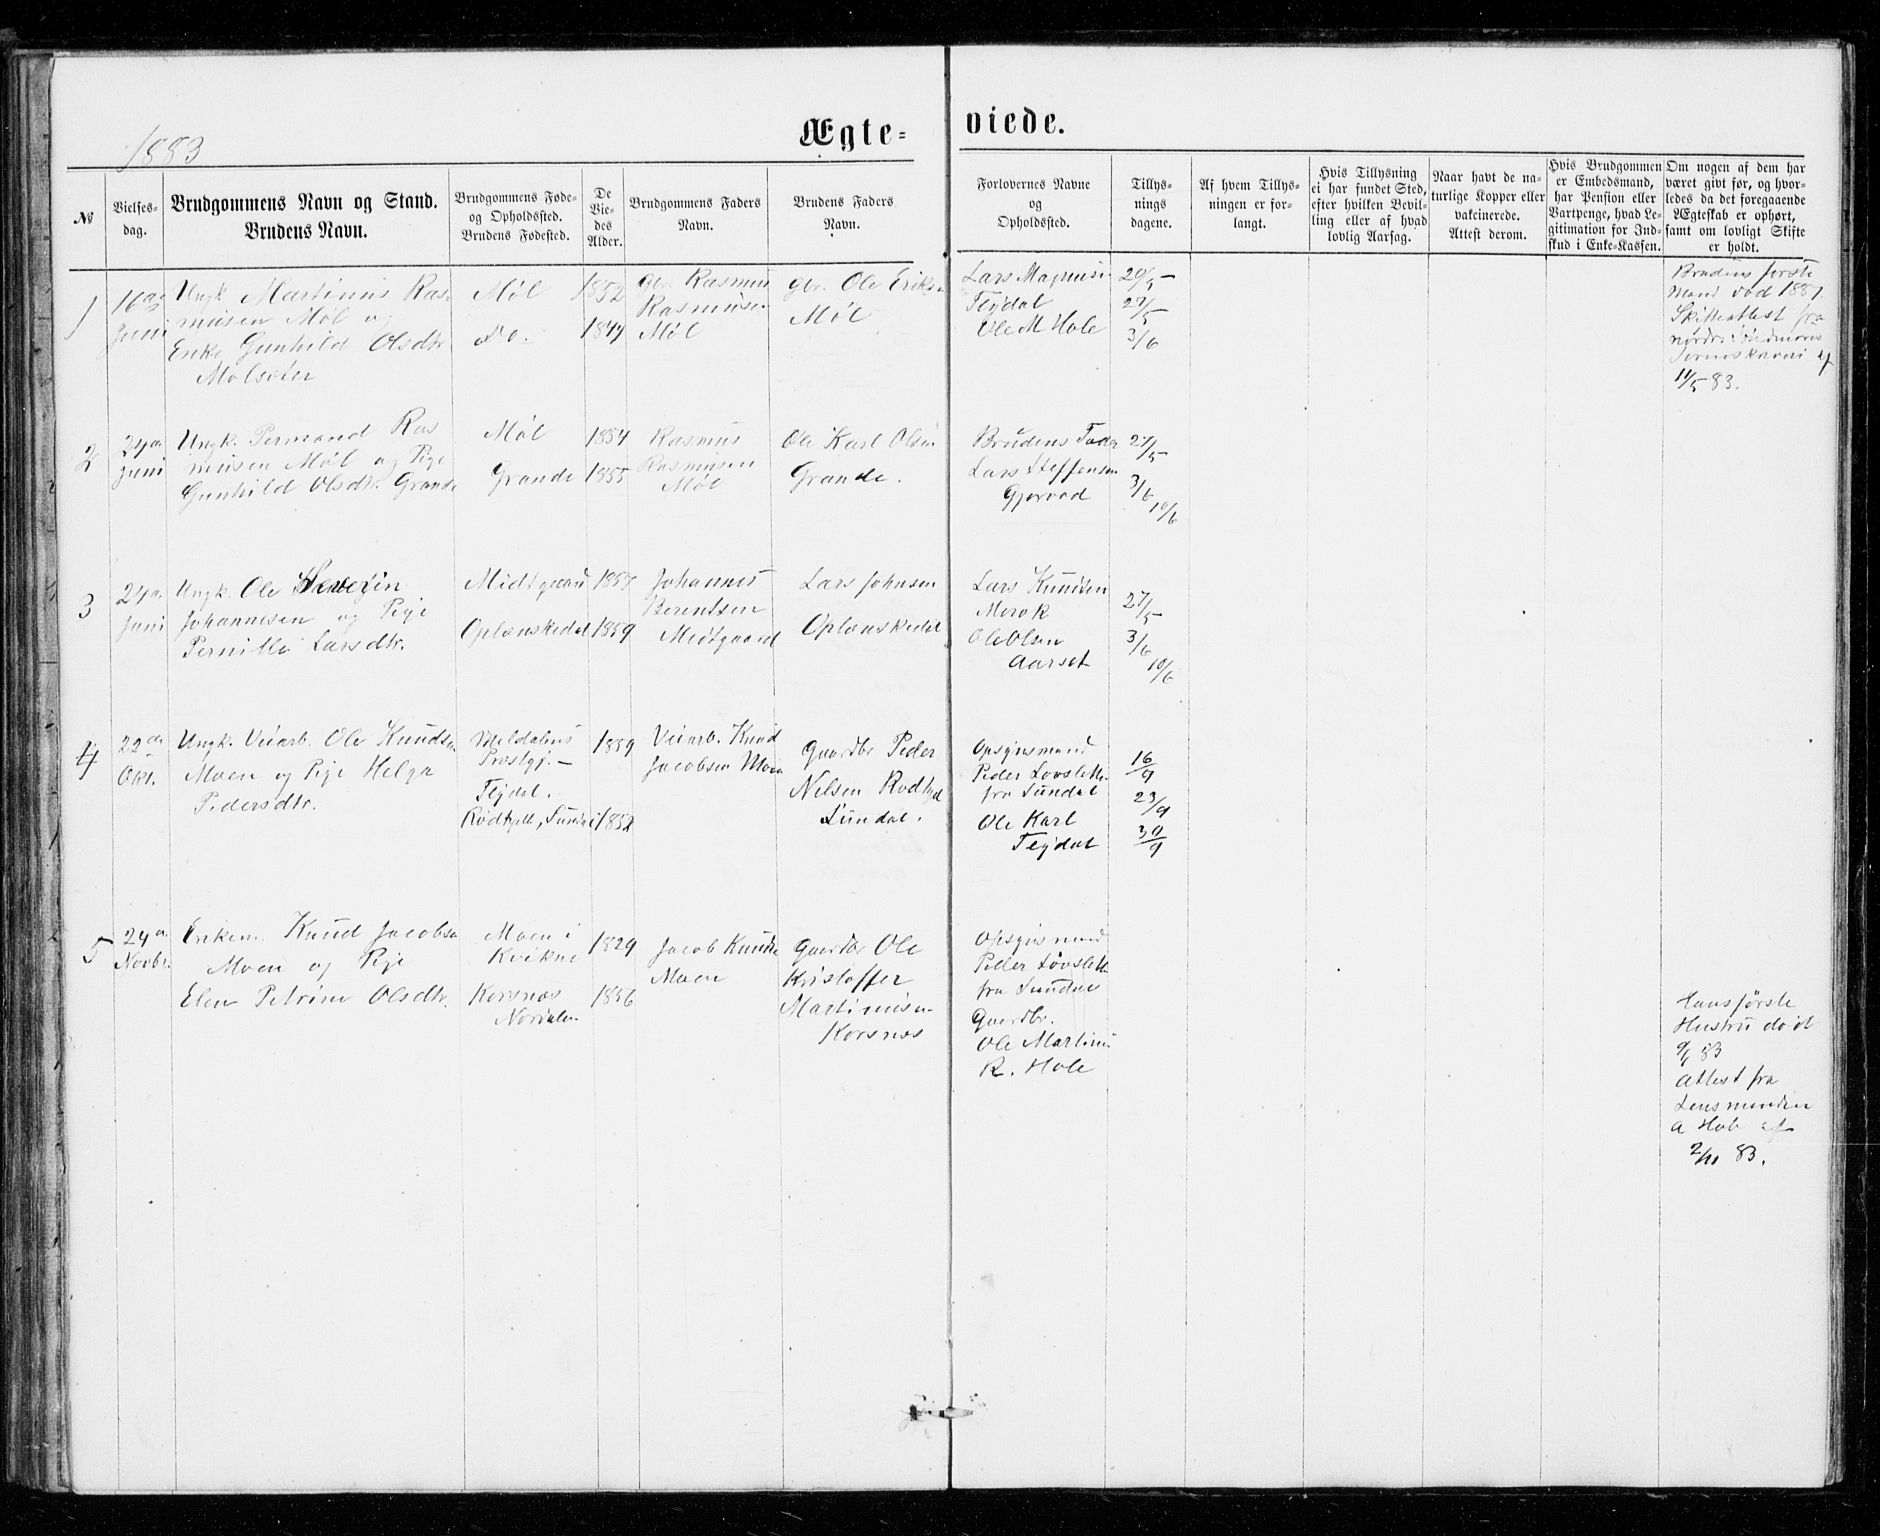 Ægte-
viede.
1883
№
Vielses-
dag.
Brudgommens Navn og Stand.
Brudens Navn.
Brudgommens Føde-
og Opholdssted.
Brudens Fødested.
De
Vie-
des
Alder.
Brudgommens Faders
Navn.
Brudens Faders
Navn.
Forlovernes Navne
og
Opholdssted.
Tillys-
nings
dagene.
Af hvem Tillys-
ningen er for-
langt.
Hvis Tillysning
ei har fundet Sted,
efter hvilken Bevil-
ling eller af hvad
lovlig Aarsag.
Naar havt de na-
turlige Kopper eller
vakcinerede.
Attest derom.
Hvis Brudgommen
er Embedsmand,
har Pension eller
Vartpenge, hvad Le-
gitimation for Ind-
skud i Enke-Kassen.
Om nogen af dem har
været givt før, og hvor-
ledes da det foregaaende
Ægteskab er ophørt,
samt om lovligt Skifte
er holdt.
1
16de
Juni
Ungk. Martinus Ras-
musen Møl og
Enke Gunhild Olsdtr
Mølsæter
Møl
Do.
1852
1844
Gbr. Rasmus
Rasmusen
Møl
Gbr. Ole Eriksen
Møl
Lars Magnusen
Fejdal
Ole M Hole
20/5
27/5
3/6
Brudens første
Mand død 1881.
Skifteattest fra
nordre Søndmøres
Sorenskriveri af
11/5 83.
2
24de
Juni
Ungk. Permand Ras
musen Møl og Pige
Gunhild Olsdtr. Grande
Møl
Grande
1854
1855
Rasmus
Rasmusen
Møl
Ole Karl Olsen
Grande.
Brudens Fader
Lars Steffensen
Gjørvad
27/5
3/6
10/6
3
24de
Juni
Ungk. Ole Severin
Johannesen og Pige
Pernille Larsdtr.
Midtgaard
Oplænskedal
1857
1859
Johannes
Berentsen
Midtgaard
Lars Johnsen
Oplænskedal
Lars Knudsen
Merok
Ole Olsen
Aarset
27/5
3/6
10/6
4
22de
Okt.
Ungk. Veiarb. Ole Knudsen
Moen og Pige Helga
Pedersdtr.
Meldalens
Præstgj.
Fejdal.
Rødkjell, Sundal
1859
1852
Veiarb. Knud
Jacobsen Moen
Gaardbr Peder
Nilsen Rødkjel
Sundal.
Opsynsmand
Peder Løvslett
fra Sundal
Ole Karl
Fejdal
16/9
23/9
30/9
5
24de
Novbr.
Enkem. Knud Jacobsen
Moen og Pige
Elen Petrine Olsdtr.
Moen i
Kvikne
Korsnæs
Nordalen
1829
1856
Jacob Knudsen
Moen
Gaardbr Ole
Kristoffer
Martinusen
Korsnæs
Opsynsmand
Peder Løvslett
fra Sundal
Gaardbr.
Ole Martinus
R. Hole
Hans første
Hustru død
83
Attest fra
Lensmanden
A Hole af
2/11 83.